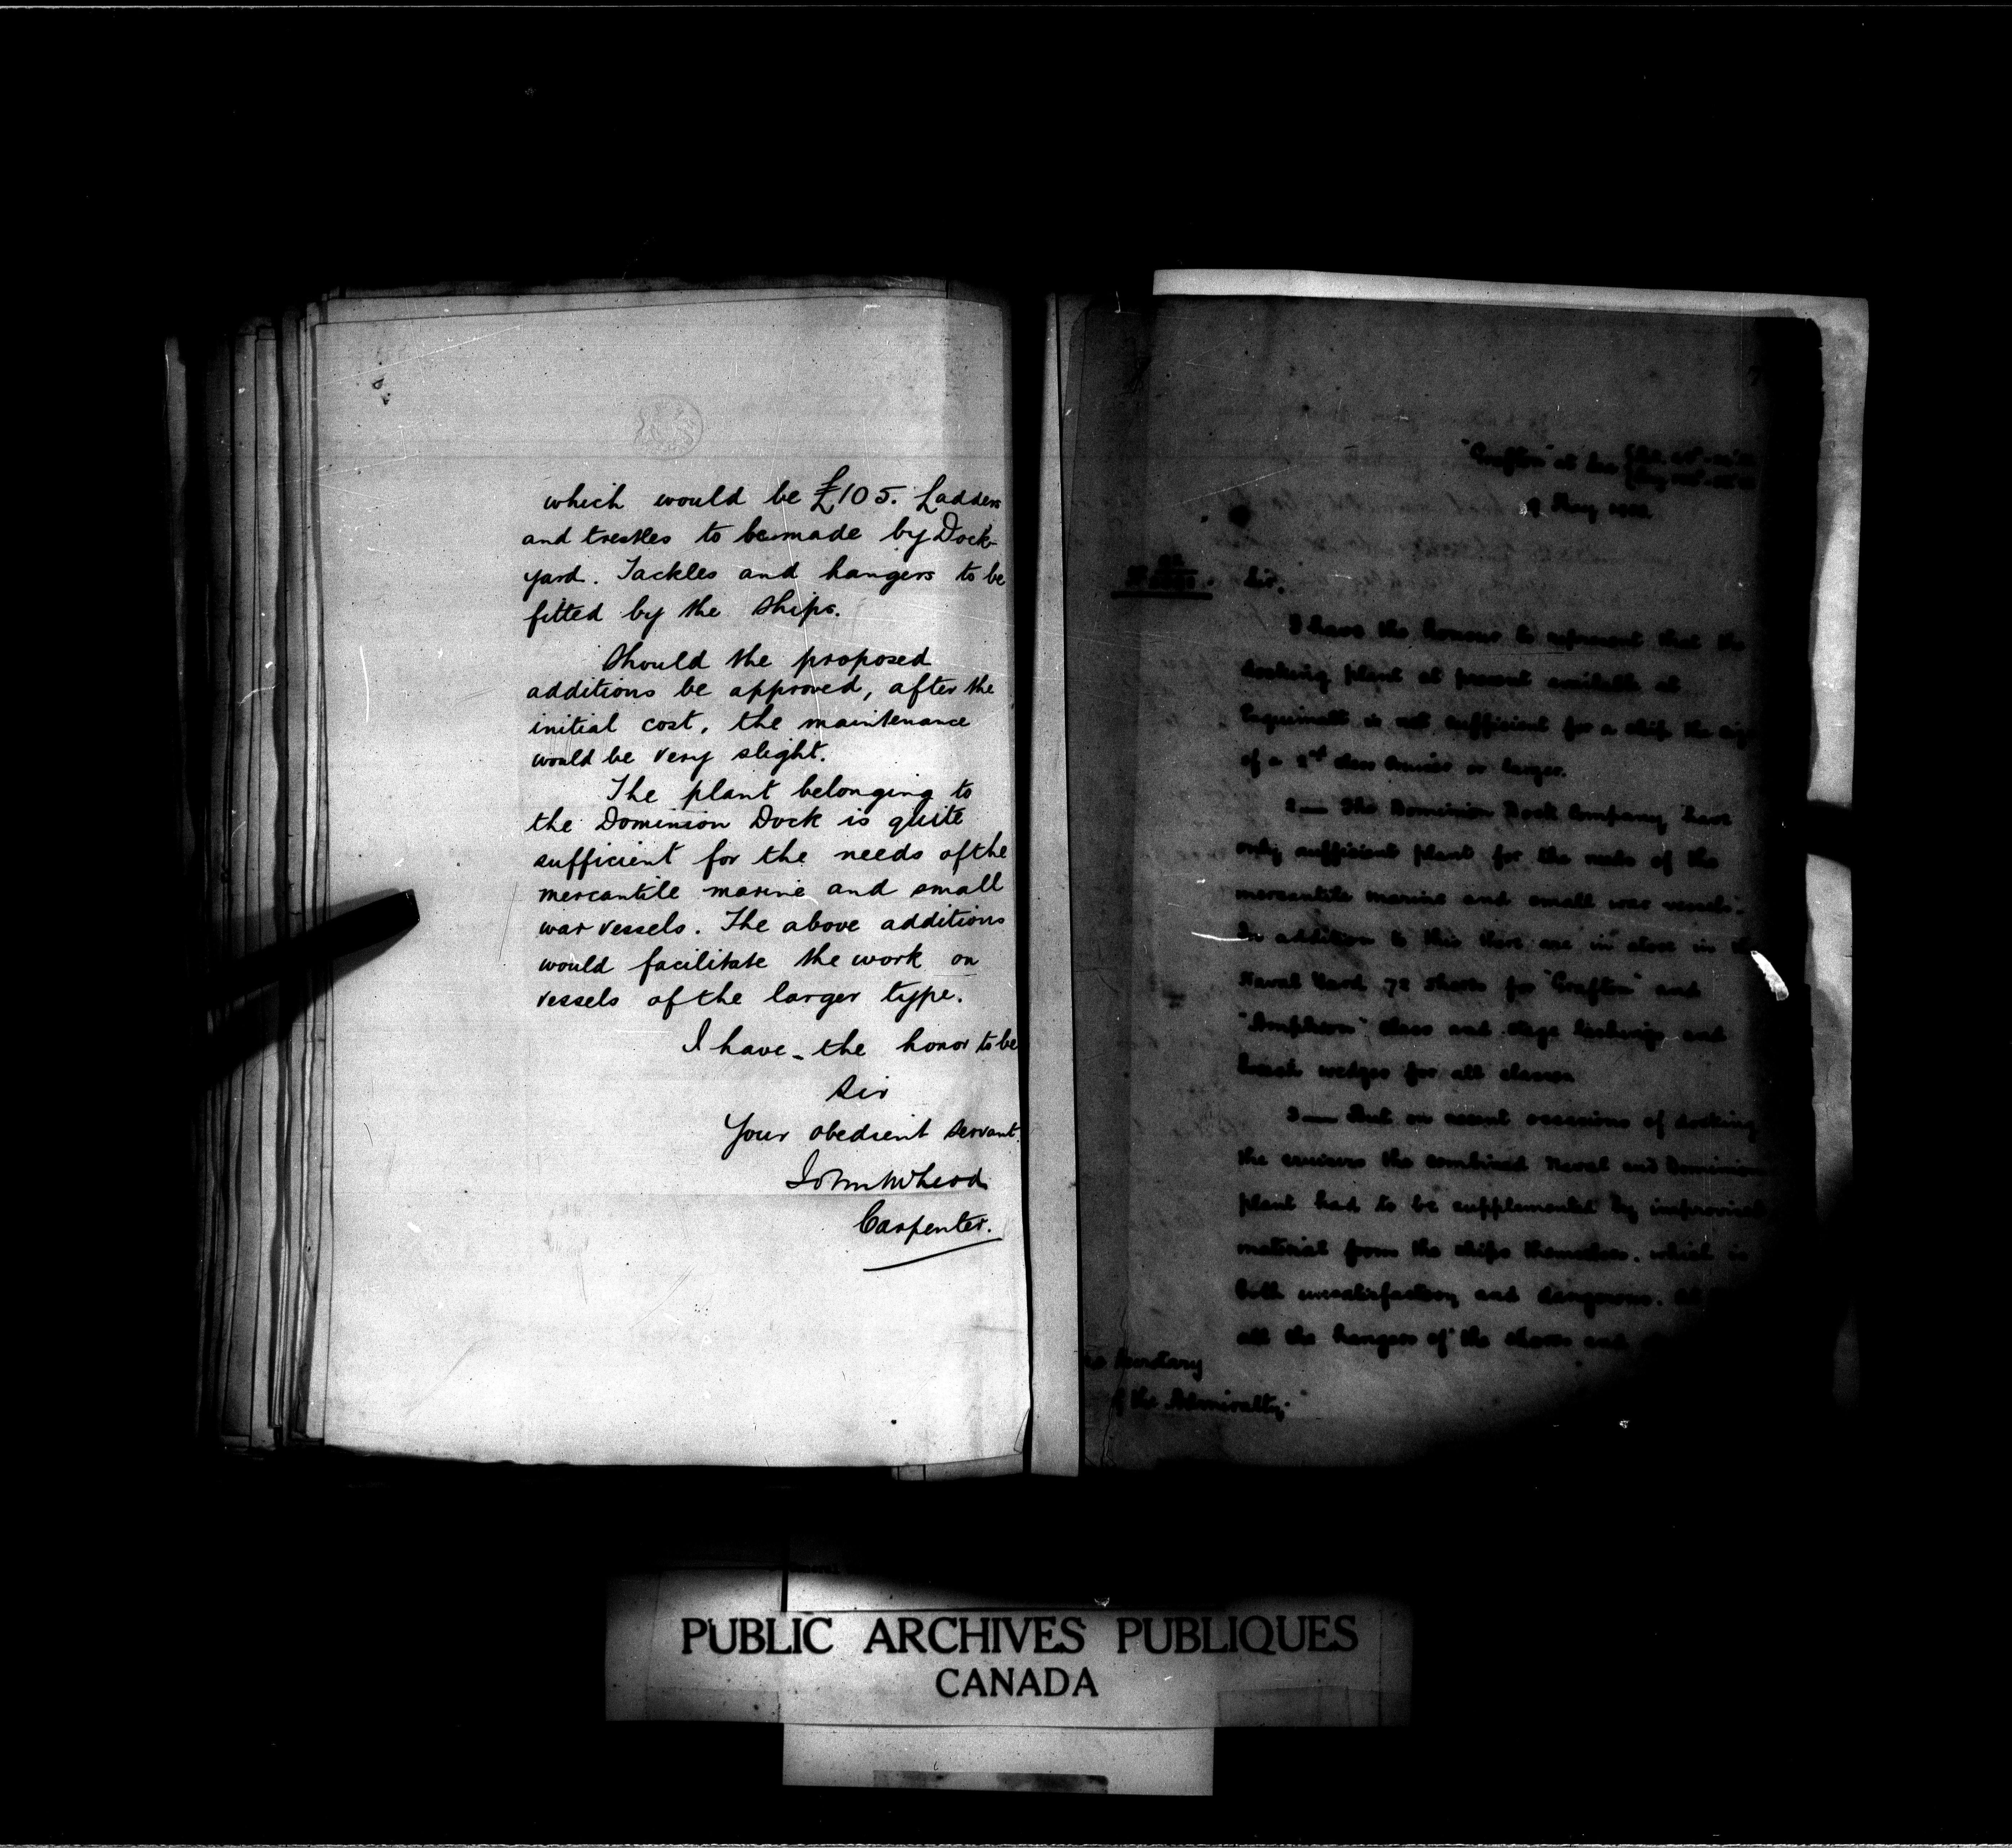 which would be £105. Ladders
and trestles to be made by Dock-
yard. Tackles and hangers to be
fitted by the ships.
Should the proposed
additions be approved, after the
initial cost, the maintenance
would be very slight.
The plant belonging to
the Dominion Dock is quite
sufficient for the needs of the
mercantile marine and small
war vessels. The above additions
would facilitate the work on
vessels of the larger type.
I have the honor to be
Sir
Your obedient servant
John
Carpenter.
7
"Grafton" at Sea
9 May
Sir,
I have the honour to represent that the
docking plant at present available at
Esquimalt is not sufficient for a ship the
of a 2nd class cruiser or larger.
2— The Dominion Dock Company have
only sufficient plant for the needs of the
mercantile marine and small war vessels.
In addition to this there are in store in
Naval Yard 72 shores for "Grafton" and
"Amphion" class and stage and
wedges for all classes
3— But on recent occasions of docking
the cruisers the combined Naval and Dominion
plant had to be supplemented by improvised
material from the ships themselves, which is
both unsatisfactory and dangerous.
all the hangers of the shores and
Secretary
of the Admiralty.
PUBLIC ARCHIVES PUBLIQUES
CANADA